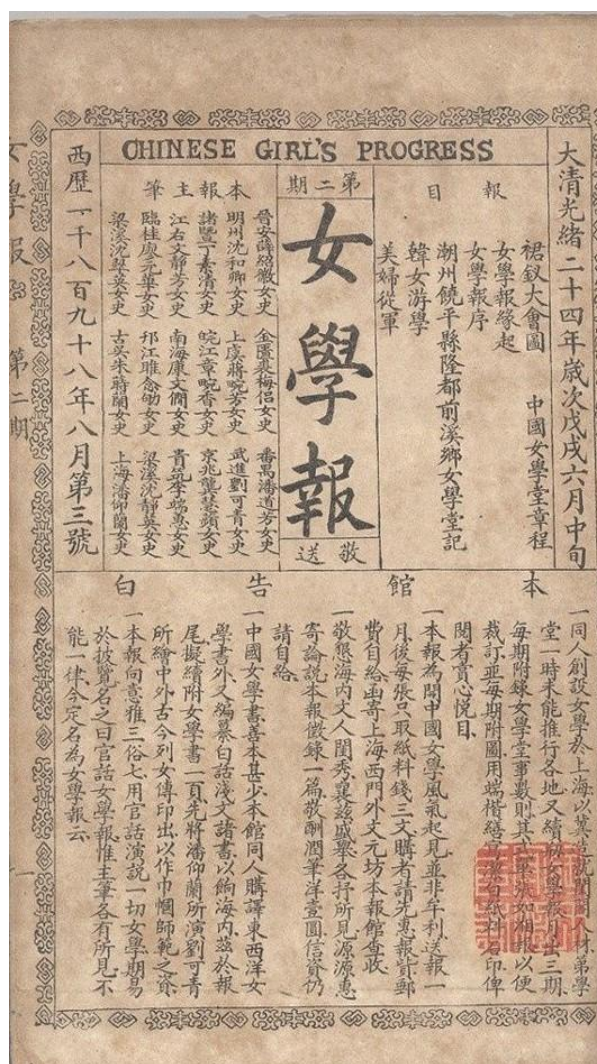 CHINESE GIRL'S PROGRESS
大清光緒二十四年歲次戊戌六月中旬
報目
裙釵大會圖 中國女學堂章程
女學報緣起
女學報序
潮州饒平縣隆都前溪鄉女學堂記
韓女游學
美婦從軍
第二期
女學報
敬送
本報主筆
晉安薛紹徽女史 金匱裘梅侶女史 番禺潘道芳女史
明州沈和卿女史 上虞蔣畹芳女史 武進劉可青女史
諸暨丁素清女史 皖江章畹香女史 京兆龔慧蘋女史
江右文靜芳女史 南海康文僩女史 貴筑李端蕙女史
臨桂廖元華女史 邗江睢念劬女史 梁溪沈靜英女史
梁溪沈翠英女史 古吳朱蒔蘭女史 上海潘仰蘭女史
西歷一千八百九十八年八月第三號
本館告白
一同人創設女學於上海以冀造就閨閫人材第學
堂一時未能推行各地又續女學報月出三期
每期附錄女學堂事數則其式單張如湘報以便
裁訂並每期附圖用端楷繕寫潔白紙料石印俾
閱者賞心悅目
一本報為開中國女學風氣起見並非牟利送報一
月後每張只取紙料錢三文購者請先惠報貲郵
費自給函寄上海西門外文元坊本報館查收
一敬懇海內文人閨秀襄茲盛舉各抒所見源源惠
寄論說本報徵錄一篇敬酬潤筆洋壹圓信資仍
請自給
一中國女學書善本甚少本館同人購譯東西洋女
學書外又編纂白話淺文諸書以餉海內茲於報
尾擬續附女學書一頁先將潘仰蘭所演劉可青
所繪中外古今列女傳印出以作巾幗師範之資
一本報向意雅三俗七用官話演說一切女學期易
於披覽名之曰官話女學報惟主筆各有所見不
能一律今定名為女學報云
女學報 第二期